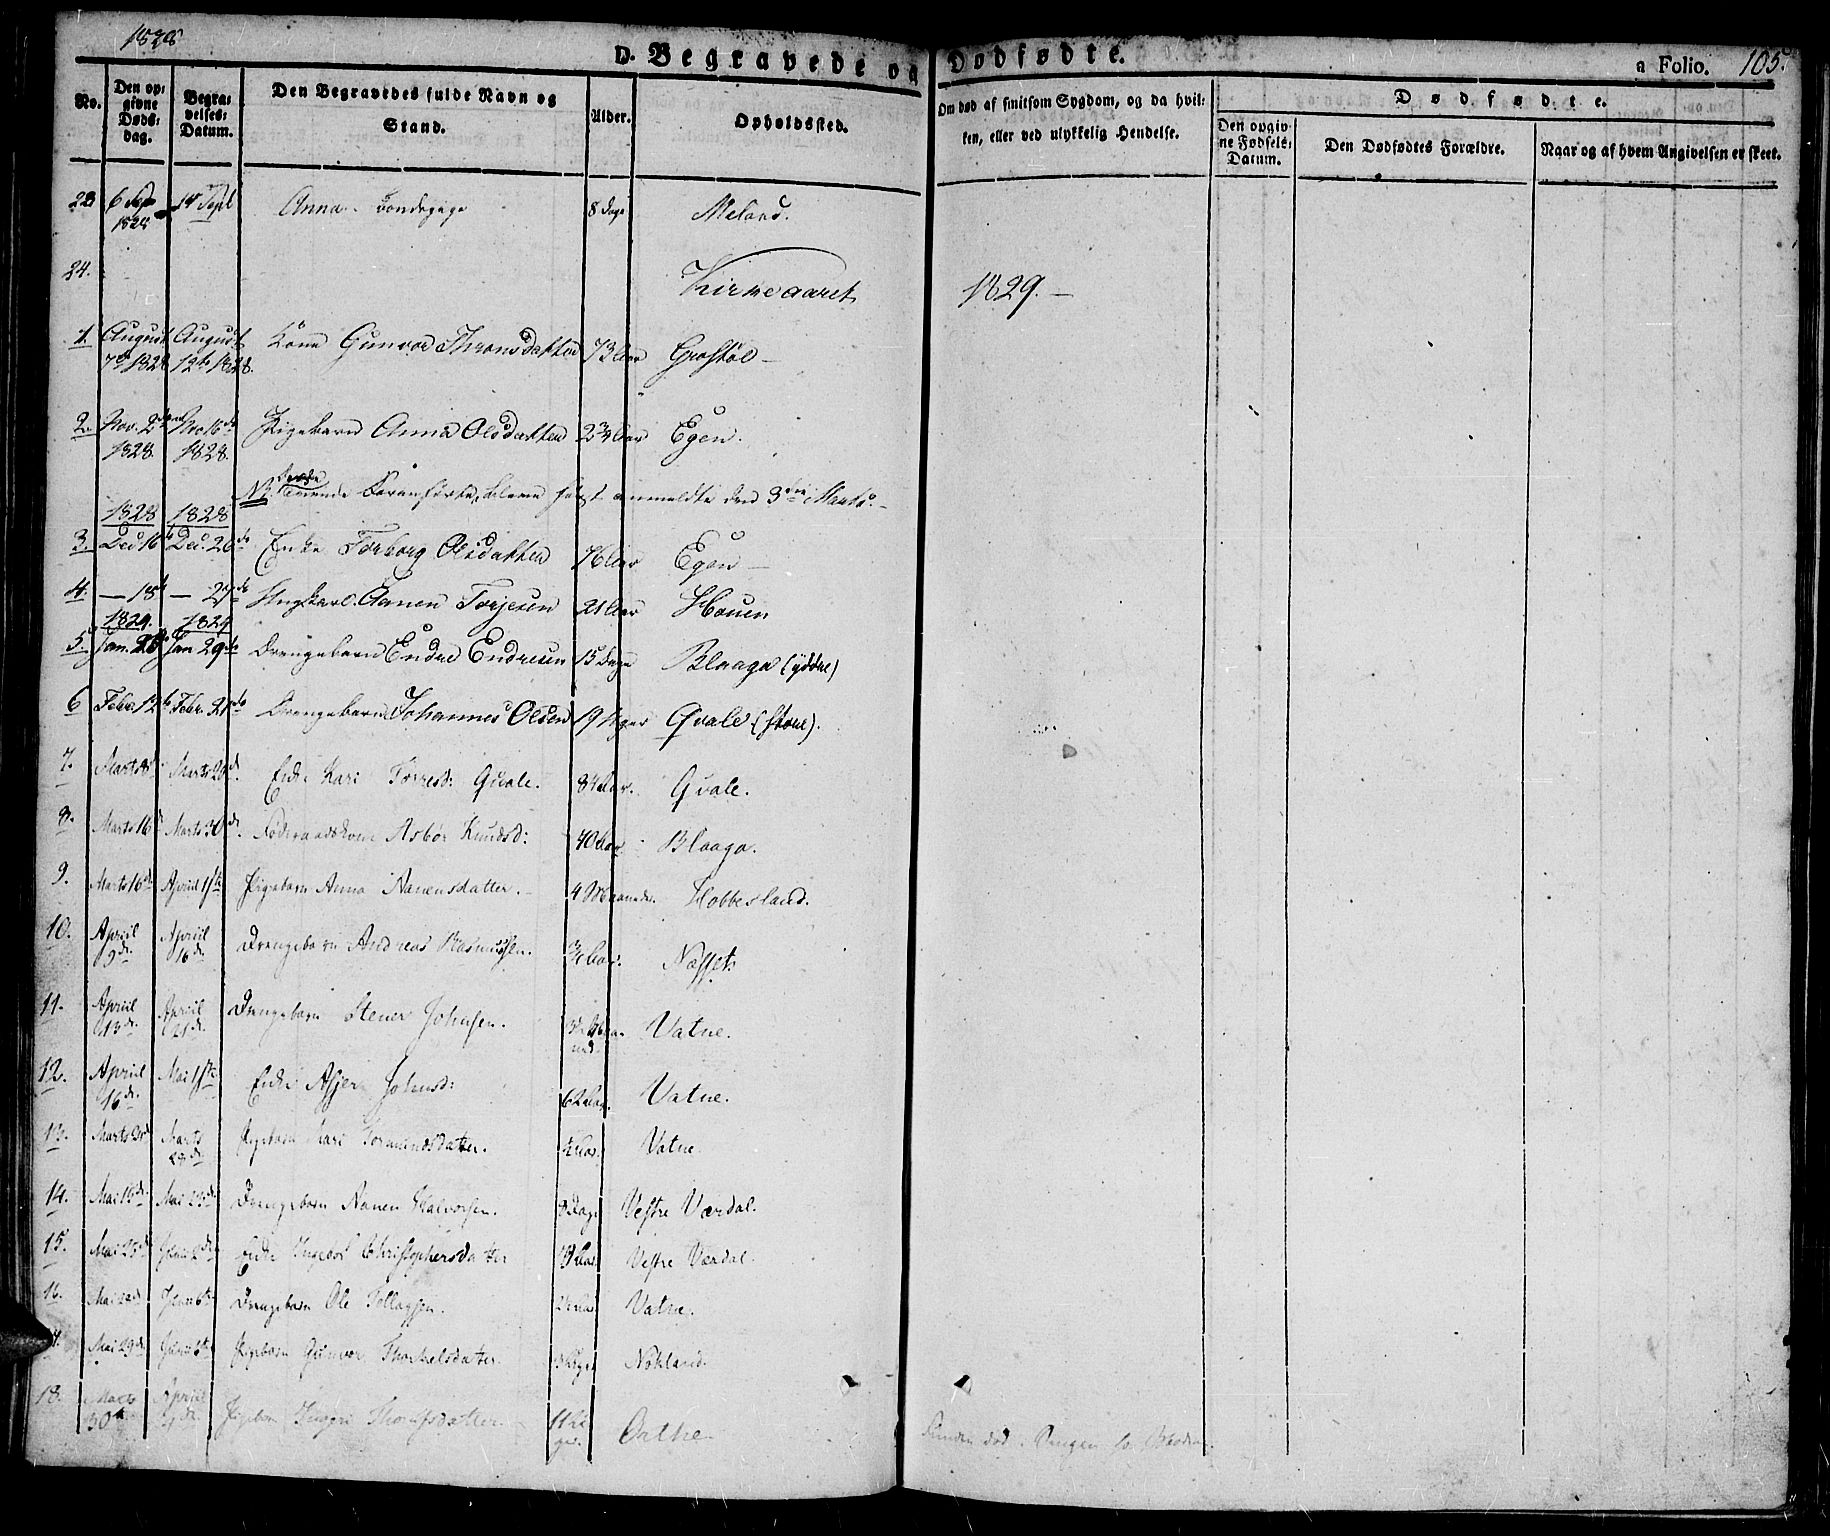 1828
D. Begravede og Dødfødte.
a Folio. 105.
No.
Den opgivne Dødsdag.
Begravelses-Datum.
Den Begravedes fulde Navn og Stand.
Alder.
Opholdssted.
Om død af smitsom Sygdom, og da hvilken, eller ved ulykkelig Hendelse.
Dødfødte.
Den opgivne Fødsels-Datum.
Den Dødfødtes Forældre.
Naar og af hvem Angivelsen er skeet.
23 6 Sep 1828 14 Sept Anna Bondepige 8 Dage Meland.
24.
Kirkeaaret 1829. —
1. August 7de 1828 August 12te 1828. Kone Gunvor Thronsdatter 73 Aar Grostøl —
2. Nov. 2den 1828. Nov 16de 1828. Pigebarn Anna Olsdatter 2 3/4 Aar Egen.
NB. Foranførte bleve først anmeldte den 3die Marts. —
1828 1828
3. Dec 16de Dec. 26de Enke Torborg Olsdatter 76 Aar Egen —
4. — 18de — 27de Ungkarl. Aanen Torjesen 21 Aar Hauen
1829. 1829
5. Jan. 20de Jan 29de Drengebarn Endre Endresen 15 Dage Blaaga (yddre)
6 Febr. 12te Febr. 21de Drengebarn Johannes Olsen 19 Uger Qvale (store).
7. Marts 8de Marts 20de. Enke Kari Torresd: Qvale. 84 Aar. Qvale.
8. Marts 16de Marts 30de. Føderaadskone Asbør Knudsd: 70 Aar Blaaga.
9. Marts 16de Apriil 1ste Pigebarn Anna Aanensdatter. — 4 Maaneder. Hobbesland.
10. Apriil 9de. Apriil 16de. Drengebarn Andreas Rasmussen. 3/4 Aar. Næsset.
11. Apriil 13de. Apriil 21de. Drengebarn Stener Johnsen. Maaned. Vatne.
12. Apriil 16de. Mai 1ste Enke Asjer Johnsd: 62 Aar. Vatne.
13. Marts Marts 28de Pigebarn Kari Tormundsdatter. Aar. Vatne.
14. Mai 15de. Mai 23de Drengebarn Aanen Halvorsen. 8 Dage Vestre Værdal.
15. Mai 25de Juni 2de Enke Ingebor Christophersdatter Aar Vestre Værdal.
16. Mai 22de Juni 6te Drengebarn Ole Tellagsen. Aar. Vatne.
Mai 29de Juni 6te Pigebarn Gunvor Thorkelsdatter. Uger Nokland.
18. Marts 30te Apriil de. Pigebarn Ingeri Datter 11 Uger. Oathe Funden død i Sengen hos Moderen.